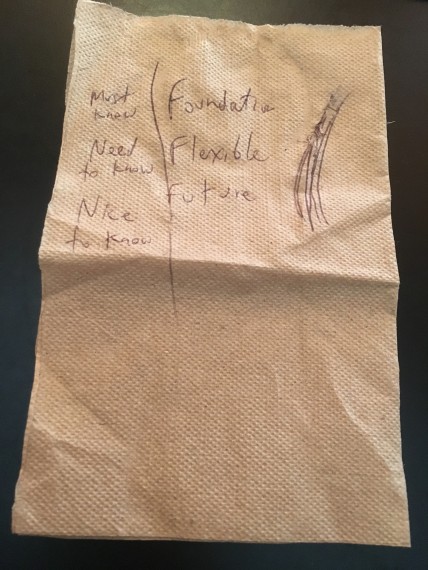 Must
know
Need
to know
Nice
to know
Foundation
Flexible
Future